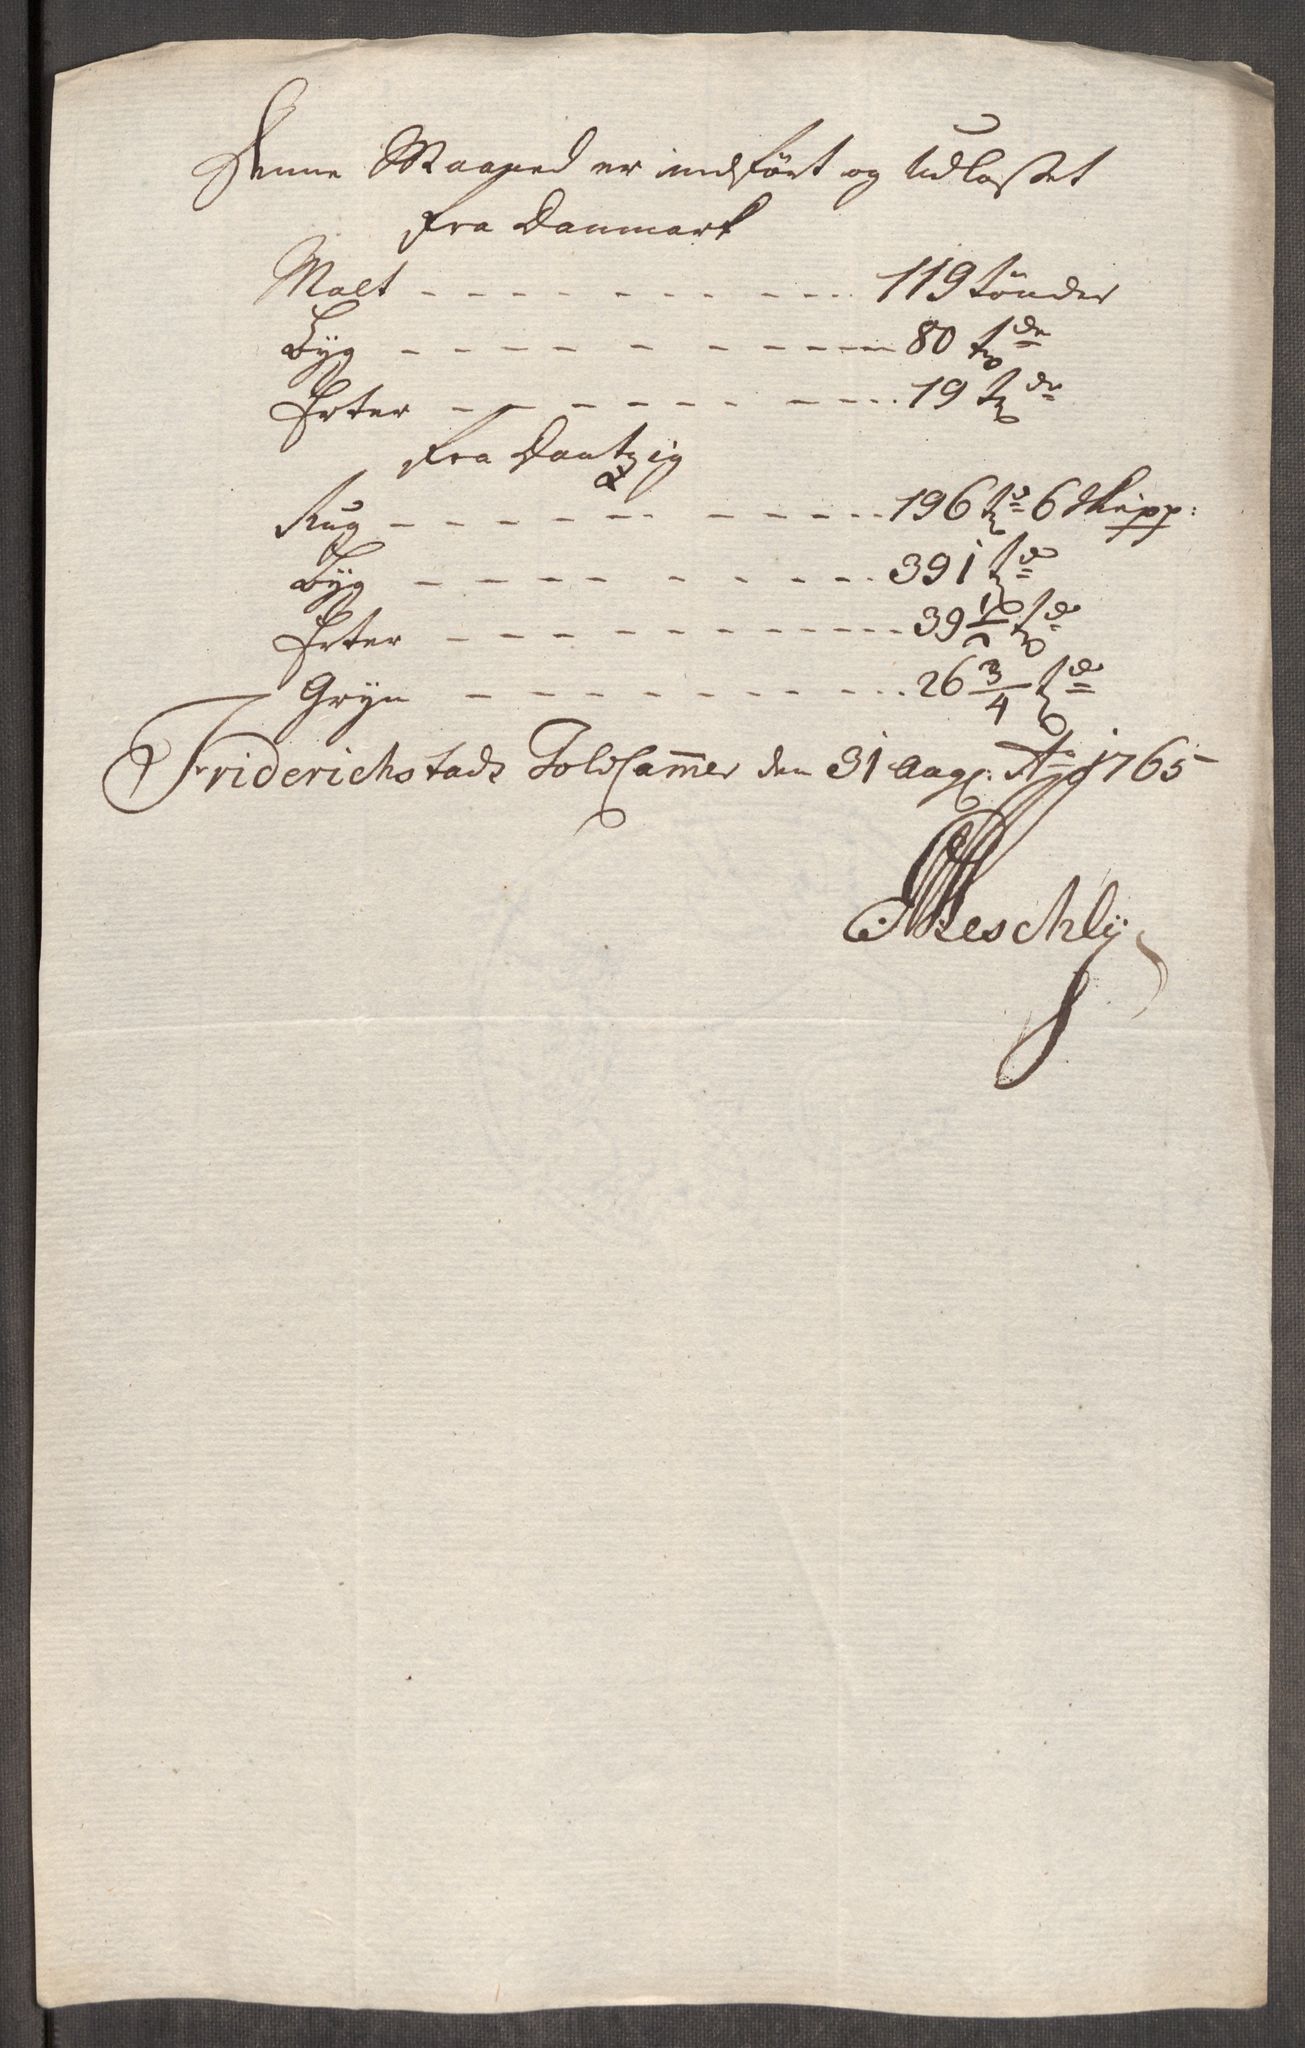 Denne Maaned er indført og Udlosset
fra Danmark
Malt - - - - - - - - - - 119 tønder
Byg - - - - - - - - - - 80 tdr
Erter - - - - - - - - - - 19 tdr
fra Dantzig
Rug - - - - - - - - - - 196 td 6 Skepp:
Byg - - - - - - - - - - 391 td
Erter - - - - - - - - - - 39 1/2 td
Gryn - - - - - - - - - - 26 3/4 td
Friderichstads Told Cam̅er den 31 Aug: Ao 1765